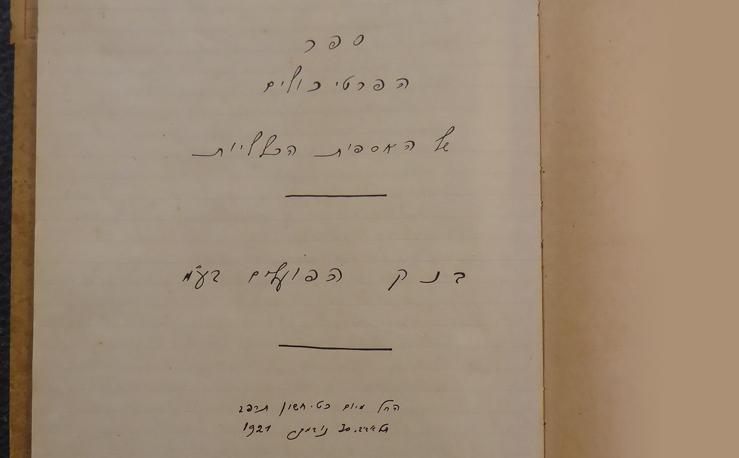 ספר
הפרטיכולים
של האספות הכלליות
בנק הפועלים בע"מ
החל מיום כט. חשון תרפב
30 נובמבר 1921